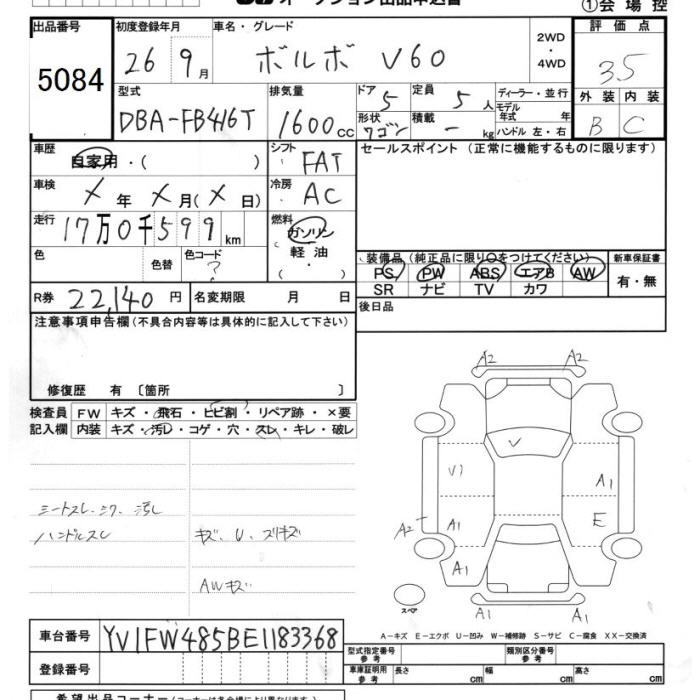 オークション出品申込書
①会場控
出品番号 初度登録年月 車名・グレード 評価点
5084 26 9月 ボルボ V60 2WD・4WD 3.5
型式 排気量 ドア 定員 ディーラー・並行
DBA-FB416T 1600cc 5 5人 モデル年式 年 外装 内装
形状 ワゴン 積載 - kg ハンドル 左・右 B C
車歴 自家用・( ) シフト FAT セールスポイント (正常に機能するものに限ります)
車検 X年 X月(X日) 冷房 AC
走行 17万0千599km 燃料 ガソリン
軽油
色 色替 色コード ?
装備品(純正品に限り○をつけてください) 新車保証書
PS PW ABS エアB AW 有・無
SR ナビ TV カワ
R券 22,140円 名変期限 月 日 後日品
注意事項申告欄(不具合内容等は具体的に記入して下さい)
修復歴 有 〔箇所 〕
検査員 FW キズ・飛石・ヒビ割・リペア跡・×要
記入欄 内装 キズ・汚レ・コゲ・穴・スレ・キレ・破レ
A2 A2
V
V1 A1
A2 A1 E
A1 A1
A1 A1
シートスレ、シワ、汚レ
ハンドルスレ キズ、U、スリキズ
AWキズ
スペア
A-キズ E-エクボ U-凹み W-補修跡 S-サビ C-腐食 XX-交換済
車台番号 YV1FW485BE1183368
型式指定番号 参考 類別区分番号 参考
登録番号 車庫証明用 参考 長さ cm 幅 cm 高さ cm
希望出品コーナー